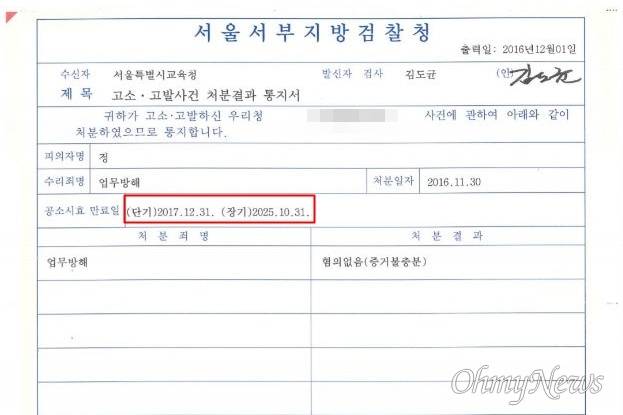 서울서부지방검찰청
출력일: 2016년12월01일
수신자 서울특별시교육청 발신자 검사 김도균 (인)
제 목 고소·고발사건 처분결과 통지서
귀하가 고소·고발하신 우리청 사건에 관하여 아래와 같이
처분하였으므로 통지합니다.
피의자명 정
수리죄명 업무방해 처분일자 2016.11.30
공소시효 만료일 (단기)2017.12.31. (장기)2025.10.31.
처 분 죄 명 처 분 결 과
업무방해 혐의없음(증거불충분)
OhmyNews